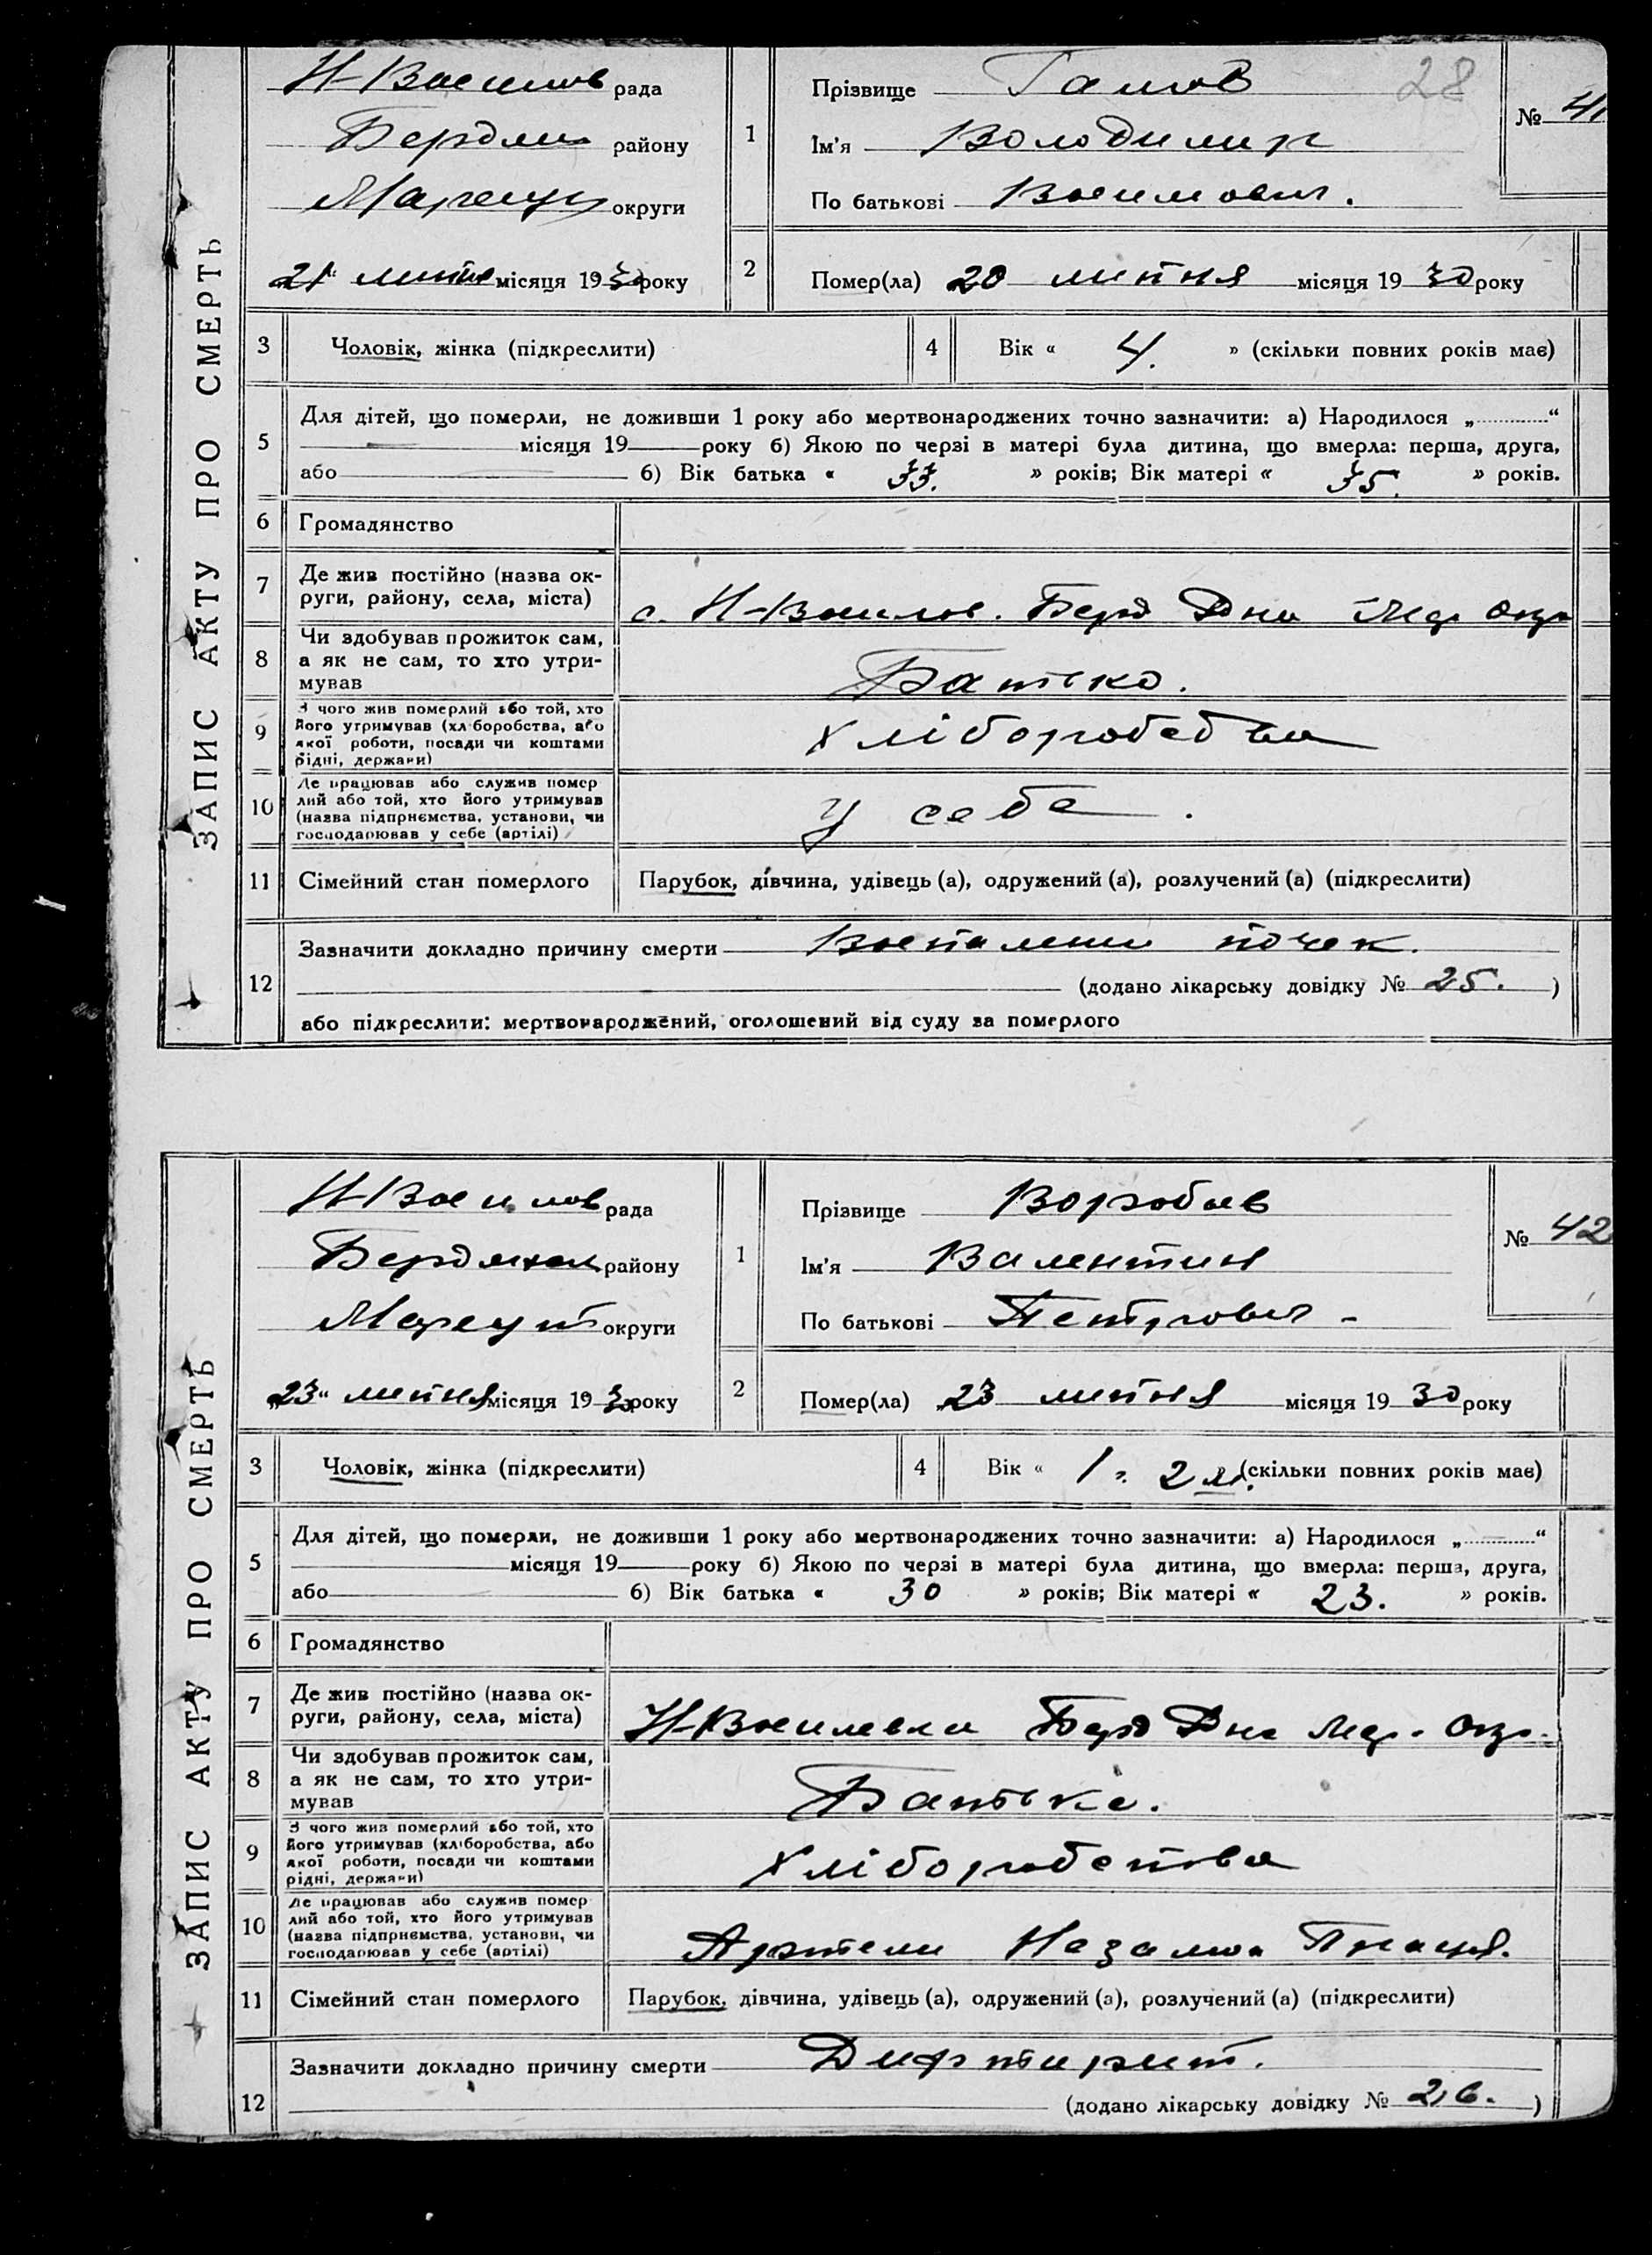 ЗАПИС АКТУ ПРО СМЕРТЬ
Н-Василов рада
Бердян району
Маріуп округи
„21“ липня місяця 1930 року
1
Прізвище Гамов
28
№ 41
Ім'я Володимир
По батькові Василович.
2
Помер(ла) 20 липня місяця 1930 року
3 Чоловік, жінка (підкреслити)
4 Вік « 4. » (скільки повних років має)
5
Для дітей, що померли, не доживши 1 року або мертвонароджених точно зазначити: а) Народилося „ “
місяця 19 року б) Якою по черзі в матері була дитина, що вмерла: перша, друга,
або б) Вік батька « 33. » років; Вік матері « 35. » років.
6 Громадянство
7 Де жив постійно (назва ок-
руги, району, села, міста)
с. Н-Василов. Берд Дна Мар. Окр
8 Чи здобував прожиток сам,
а як не сам, то хто утри-
мував
Батько.
9 З чого жив померлий або той, хто
його утримував (хліборобства, або
якої роботи, посади чи коштами
рідні, держави)
Хліборобства
10 Де працював або служив помер
лий або той, хто його утримував
(назва підприємства, установи, чи
господарював у себе (артілі)
У себе.
11 Сімейний стан померлого Парубок, дівчина, удівець (а), одружений (а), розлучений (а) (підкреслити)
12 Зазначити докладно причину смерти Воспаление почек.
(додано лікарську довідку № 25. )
або підкреслити: мертвонароджений, оголошений від суду за померлого
ЗАПИС АКТУ ПРО СМЕРТЬ
Н-Василов рада
Бердянськ району
Маріуп округи
„23“ липня місяця 1930 року
1
Прізвище Воробьев
№ 42
Ім'я Валентин
По батькові Петрович -
2
Помер(ла) „23 липня місяця 1930 року
3 Чоловік, жінка (підкреслити)
4 Вік « 1 г. 2 м. » (скільки повних років має)
5
Для дітей, що померли, не доживши 1 року або мертвонароджених точно зазначити: а) Народилося „ “
місяця 19 року б) Якою по черзі в матері була дитина, що вмерла: перша, друга,
або б) Вік батька « 30 » років; Вік матері « 23. » років.
6 Громадянство
7 Де жив постійно (назва ок-
руги, району, села, міста)
Н-Василевки Берд Дна Мар. Окр.
8 Чи здобував прожиток сам,
а як не сам, то хто утри-
мував
Батько.
9 З чого жив померлий або той, хто
його утримував (хліборобства, або
якої роботи, посади чи коштами
рідні, держави)
Хліборобства
10 Де працював або служив помер
лий або той, хто його утримував
(назва підприємства, установи, чи
господарював у себе (артілі)
Артели Незамож
11 Сімейний стан померлого Парубок, дівчина, удівець (а), одружений (а), розлучений (а) (підкреслити)
12 Зазначити докладно причину смерти Дифтирит.
(додано лікарську довідку № 26. )